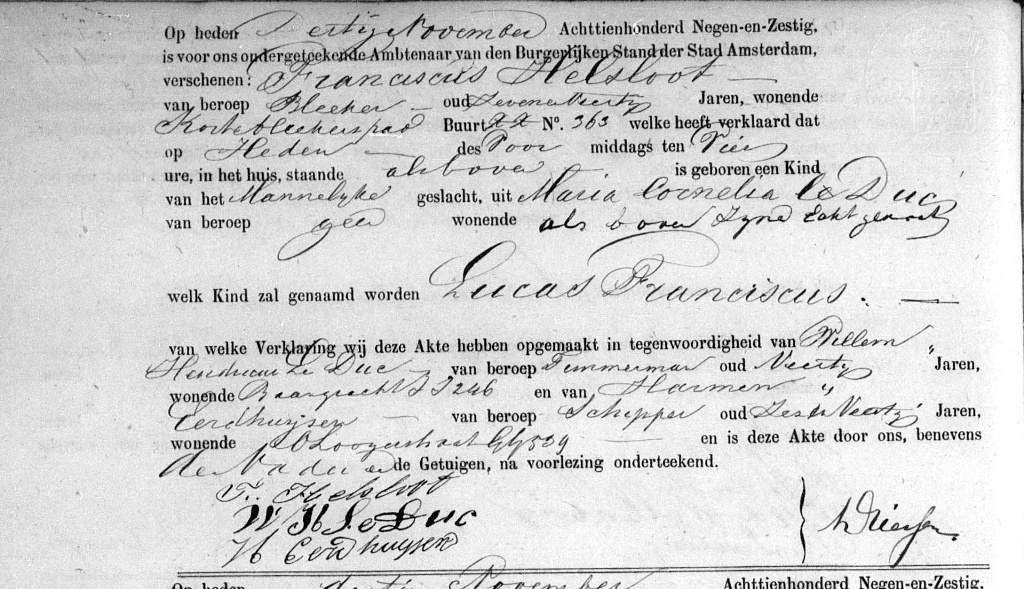 Op heden Dertig November Achttienhonderd Negen-en-Zestig,
is voor ons ondergeteekende Ambtenaar van den Burgerlijken Stand der Stad Amsterdam,
verschenen: Franciscus Helsloot
van beroep Bleeker oud Zevenenveertig Jaren, wonende
Kortebleekerspad Buurt No. 363 welke heeft verklaard dat
op Heden des Voor middags ten Vier
ure, in het huis, staande alsboven is geboren een Kind
van het Mannelyke geslacht, uit Maria Cornelia le Duc
van beroep geen wonende als boven Zyne Echtgenoot
welk Kind zal genaamd worden Lucas Franciscus.
van welke Verklaring wij deze Akte hebben opgemaakt in tegenwoordigheid van Willem
Hendrik Le Duc van beroep Timmerman oud Veertig Jaren,
wonende Baangracht 246 en van Harmen
Eerdhuijsen van beroep Schipper oud Zes en Veertig Jaren,
wonende 539 en is deze Akte door ons, benevens
de Vader en de Getuigen, na voorlezing onderteekend.
F. Helsloot
W H Le Duc
H Eerdhuysen
Op heden Dertig November Achttienhonderd Negen-en-Zestig,